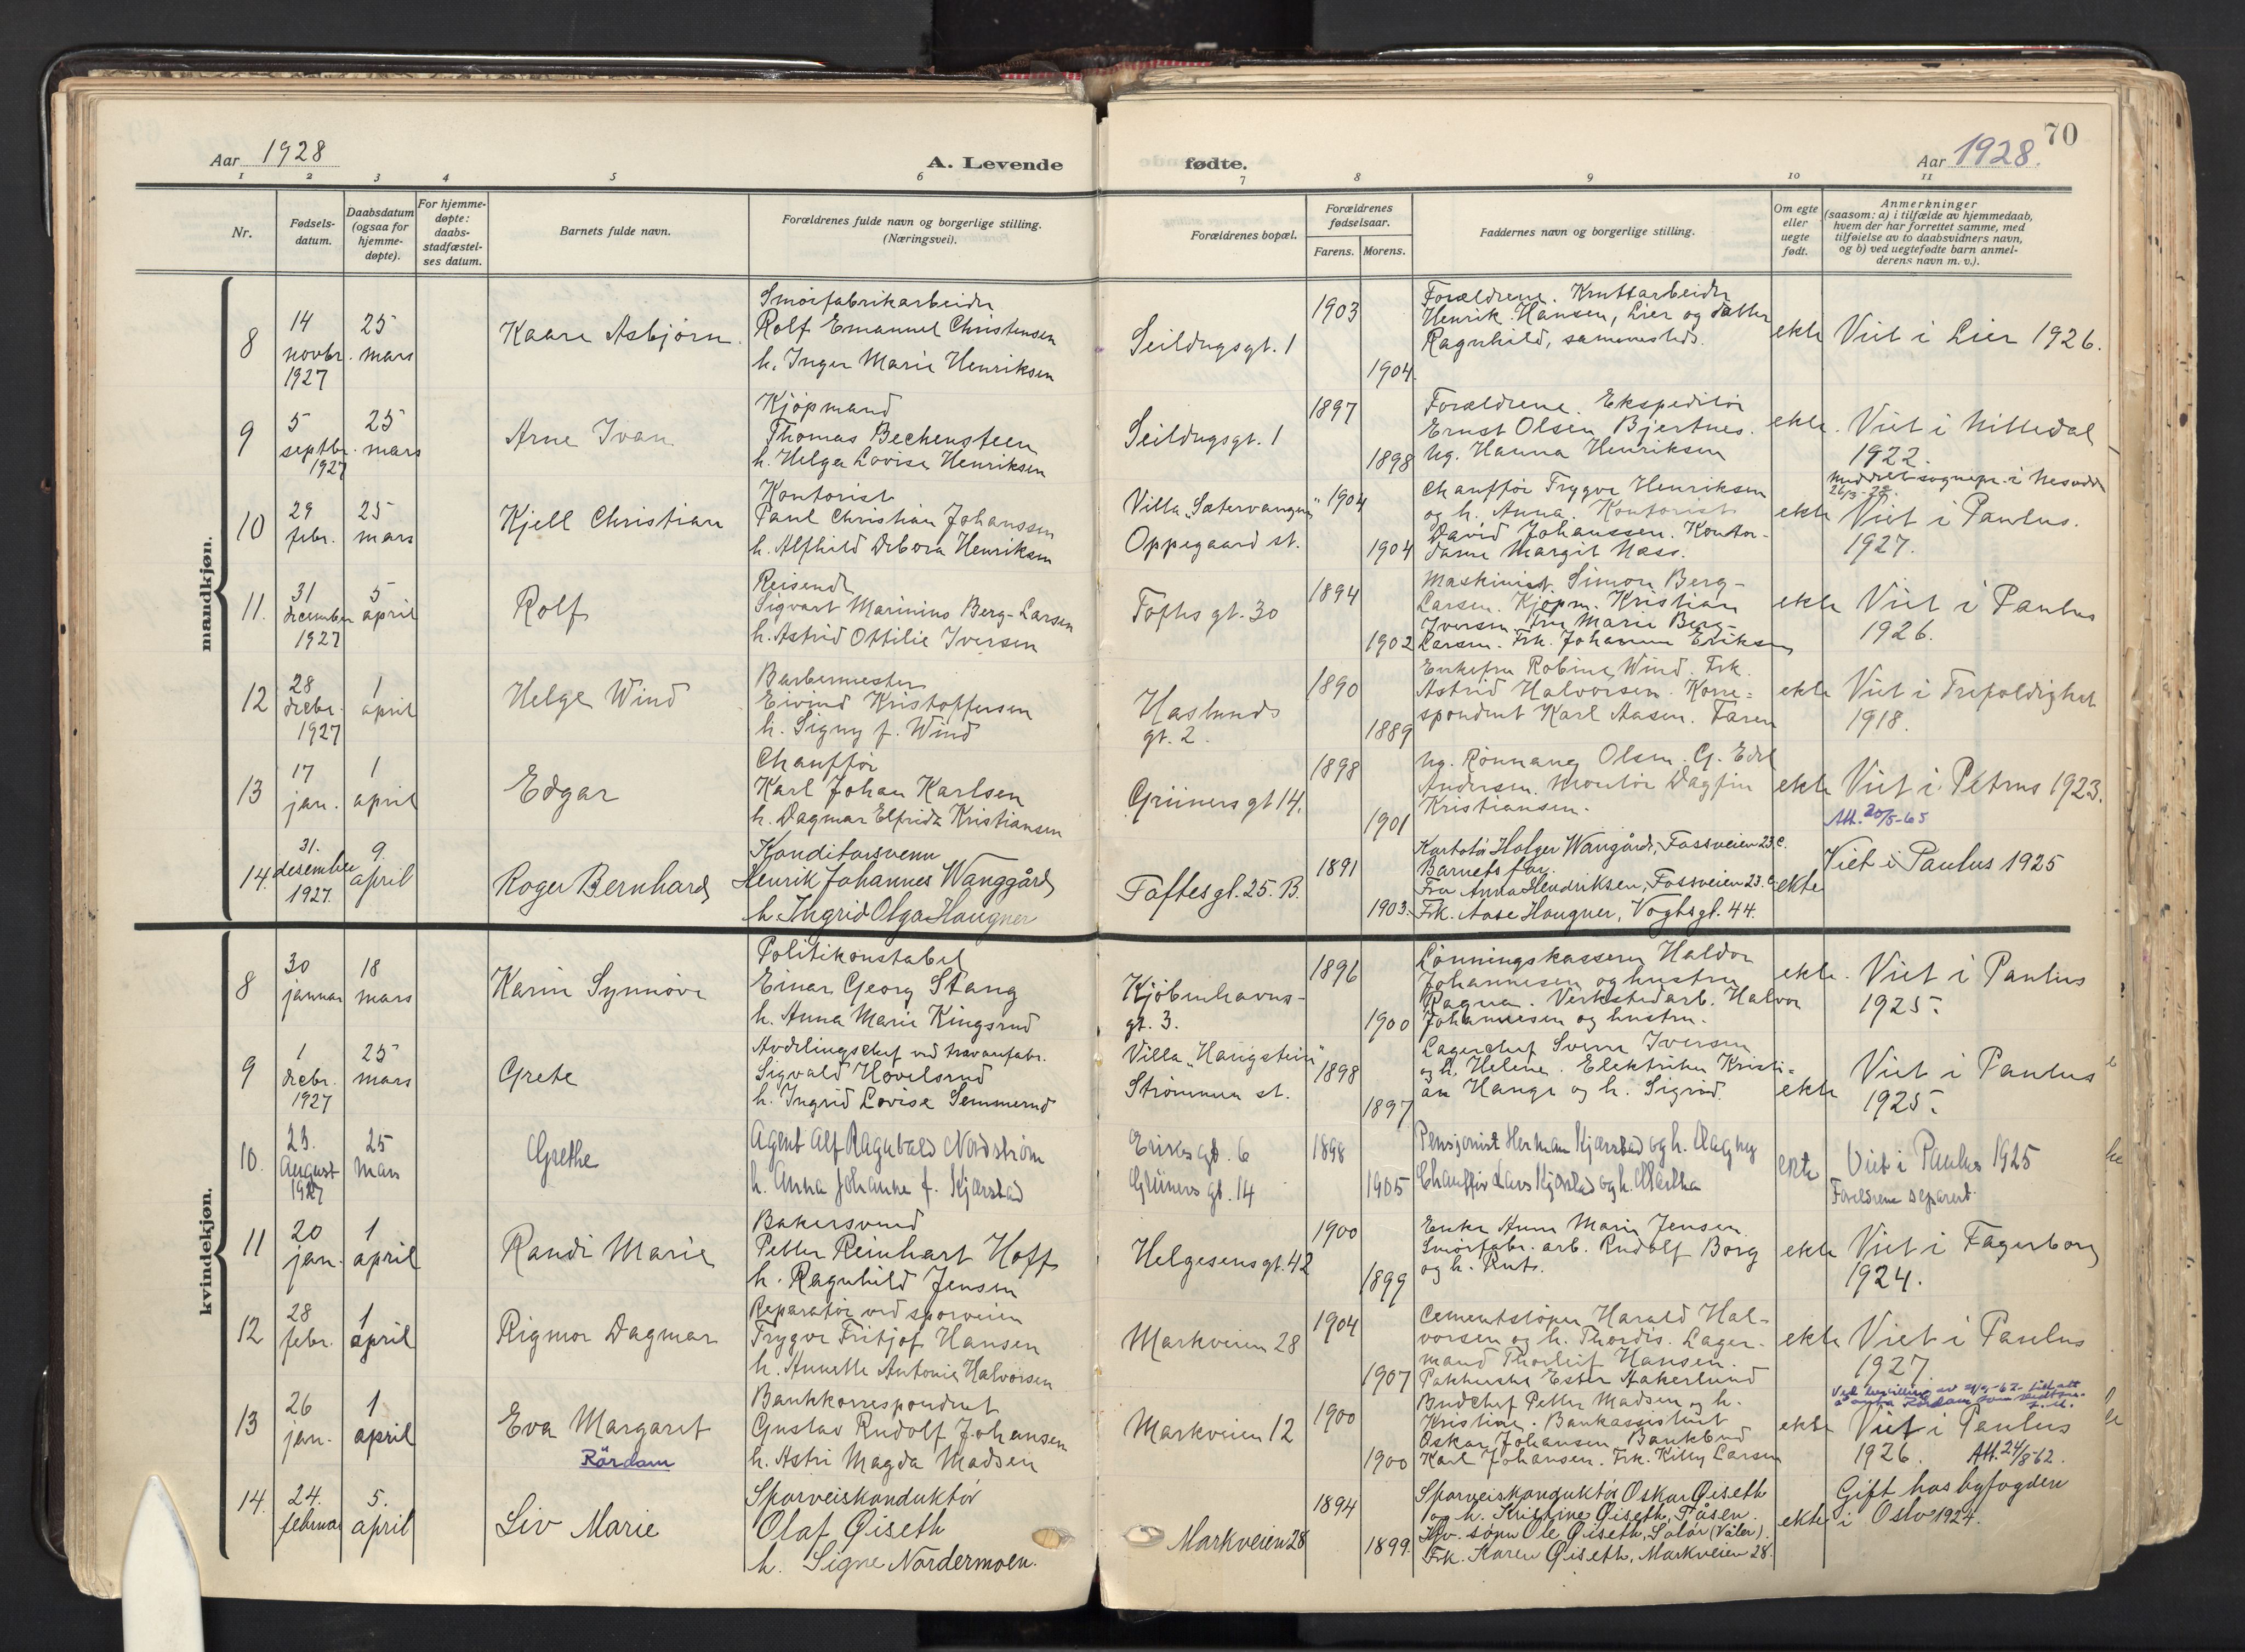 70
Aar 1928
A. Levende
fødte.
Aar 1928.
1 2 3 4 5 6 7 8 9 10 11
Nr.
Fødsels-
datum.
Daabsdatum
(ogsaa for
hjemme-
døpte).
For hjemme-
døpte:
daabs-
stadfæstel-
ses datum.
Barnets fulde navn.
Forældrenes fulde navn og borgerlige stilling.
(Næringsvei).
Forældrenes bopæl.
Forældrenes
fødselsaar.
Farens. Morens.
Faddernes navn og borgerlige stilling.
Om egte
eller
uegte
født.
Anmerkninger
(saasom: a) i tilfælde av hjemmedaab,
hvem der har forrettet samme, med
tilføielse av to daabsvidners navn,
og b) ved uegtefødte barn anmel-
derens navn m. v.).
mandkjøn.
8
14
novbr.
1927
25
mars
Kaare Asbjørn
Smørfabrikarbeider
Rolf Emanuel Christensen
h. Inger Marie Henriksen
Seildugsgt. 1
1903
1904.
Forældrene. Kruttarbeider
Henrik Hansen, Lier og datter
Ragnhild, sammesteds.
ekte
Viet i Lier 1926.
9
5
septbr.
1927
25
mars
Arne Ivan
Kjøpmand
Thomas Bechensteen
h. Helga Lovise Henriksen
Seildugsgt. 1
1897
1898
Forældrene. Ekspeditør
Ernst Olsen Bjertnes.
Ug. Hanna Henriksen
ekte.
Viet i Nittedal
1922.
10
29
febr.
25
mars
Kjell Christian
Kontorist
Paul Christian Johanssen
h. Alfhild Debora Henriksen
Villa "Sætervangen"
Oppegaard st.
1904
1904
Chauffør Trygve Henriksen
og h. Anna. Kontorist
David Johanssen. Kontor-
dame Margit Næss.
ekte
Meddelt sognepr. i Nesodden
26/3-28.
Viet i Paulus.
1927.
11.
31
december
1927
5
april
Rolf
Reisende
Sigvart Marinius Berg-Larsen
h. Astrid Ottilie Iversen
Toftes gt. 30
1894
1902
Maskinist Simon Berg-
Larsen. Kjøpm. Kristian
Iversen. Fru Marie Berg-
Larsen. Frk. Johanne Eriksen
ekte
Viet i Paulus
1926.
12
28
decbr.
1927
1
april
Helge Wind
Barbermester
Eivind Kristoffersen
h. Signy f. Wind
Haslunds
gt. 2.
1890
1889
Enkefru Robine Wind. Frk.
Astrid Halvorsen. Korre-
spondent Karl Aasen. Faren
ekte
Viet i Trefoldighet
1918.
13
17
jan.
1
april
Edgar
Chauffør
Karl Johan Karlsen
h. Dagmar Elfrida Kristiansen
Grüners gt 14.
1898
1901
Ug. Rønnaug Olsen. G. Edel
Andersen. Montør Dagfin
Kristiansen.
ekte
Viet i Petrus 1923.
Att. 20/5-65
14.
31.
desember
1927.
9.
april
Roger Bernhard
Konditorsvenn
Henrik Johannes Wanggård
h. Ingrid Olga Haugner
Toftesgt. 25. B.
1891
1903.
Kartotør Holger Wangård, Fossveien 23 C.
Barnets far.
Fru Anna Hendriksen, Fossveien 23. C
Frk. Aase Haugner, Vogtsgt. 44.
ekte
Viet i Paulus 1925
kvindekjøn.
8
30
januar
18
mars
Karin Synnøve
Politikonstabel
Einar Georg Stang
h. Anna Marie Kingsrud
Kjøbenhavns-
gt. 3.
1896
1900
Lønningskasserer Haldor
Johannesen og hustru
Ragna. Verkstedarb. Halvor
Johannesen og hustru.
ekte.
Viet i Paulus
1925.
9
1
decbr.
1927
25
mars
Grete
Avdelingschef ved
Sigvald Hovelsrud
h. Ingrid Lovise Semmerud
Villa "Haugstein"
Strømmen st.
1898
1897
Lagerchef Sverre Iversen
og h. Helene. Elektriker Kristi-
an Hauge og h. Sigrid.
ekte
Viet i Paulus
1925.
10.
23.
August
1927
25
Mars
Grethe
Agent Alf Ragnvald Nordstrøm
h. Anna Johanne f. Kjærstad
Eriksgt. 6
Grüners gt. 14
1898
1905
Pensjonist Herman Kjærstad og h. Dagny
Chauffør Lars Kjærstad og h. Martha
ekte
Viet i Paulus 1925
Foreldrene separert.
11
20
jan.
1
april
Randi Marie
Bakersvend
Petter Reinhart Hoff
h. Ragnhild Jensen
Helgesens gt. 42
1900
1899
Enke Anna Marie Jensen
Smørfabr. arb. Rudolf Borg
og h. Rut.
ekte
Viet i Fagerborg
1924.
12
28
febr.
1
april
Rigmor Dagmar
Reparatør ved sporveien
Trygve Fritjof Hansen
h. Annette Antonie Halvorsen
Markveien 28
1904
1907
Cementstøper Harald Hal-
vorsen og h. Thordis. Lager-
mand Thorleif Hansen.
Pakkerske Ester Aakerlund
ekte
Viet i Paulus
1927.
13
26
jan.
1
april
Eva Margaret
Rördam
Bankkorrespondent
Gustav Rudolf Johansen
h. Astri Magda Madsen
Markveien 12
1900
1900
Budchef Petter Madsen og h.
Kristine. Bankassistent
Oskar Johansen. Bankbud
Karl Johansen. Frk. Killy Larsen
ekte
Viet i Paulus
1926. Att. 24/8-62.
14.
24.
februar
5.
april
Liv Marie
Sporveiskonduktør
Olaf Øiseth
h. Signe Nordermoen.
Markveien 28
1894
1899.
Sporveiskonduktør Oskar Øiseth
og h. Kristine Øiseth, Tåsen.
Gv. sønn Ole Øiseth, Solør (Våler).
Frk. Karen Øiseth, Markveien 28.
ekte
Gift hos byfogden
i Oslo 1924.